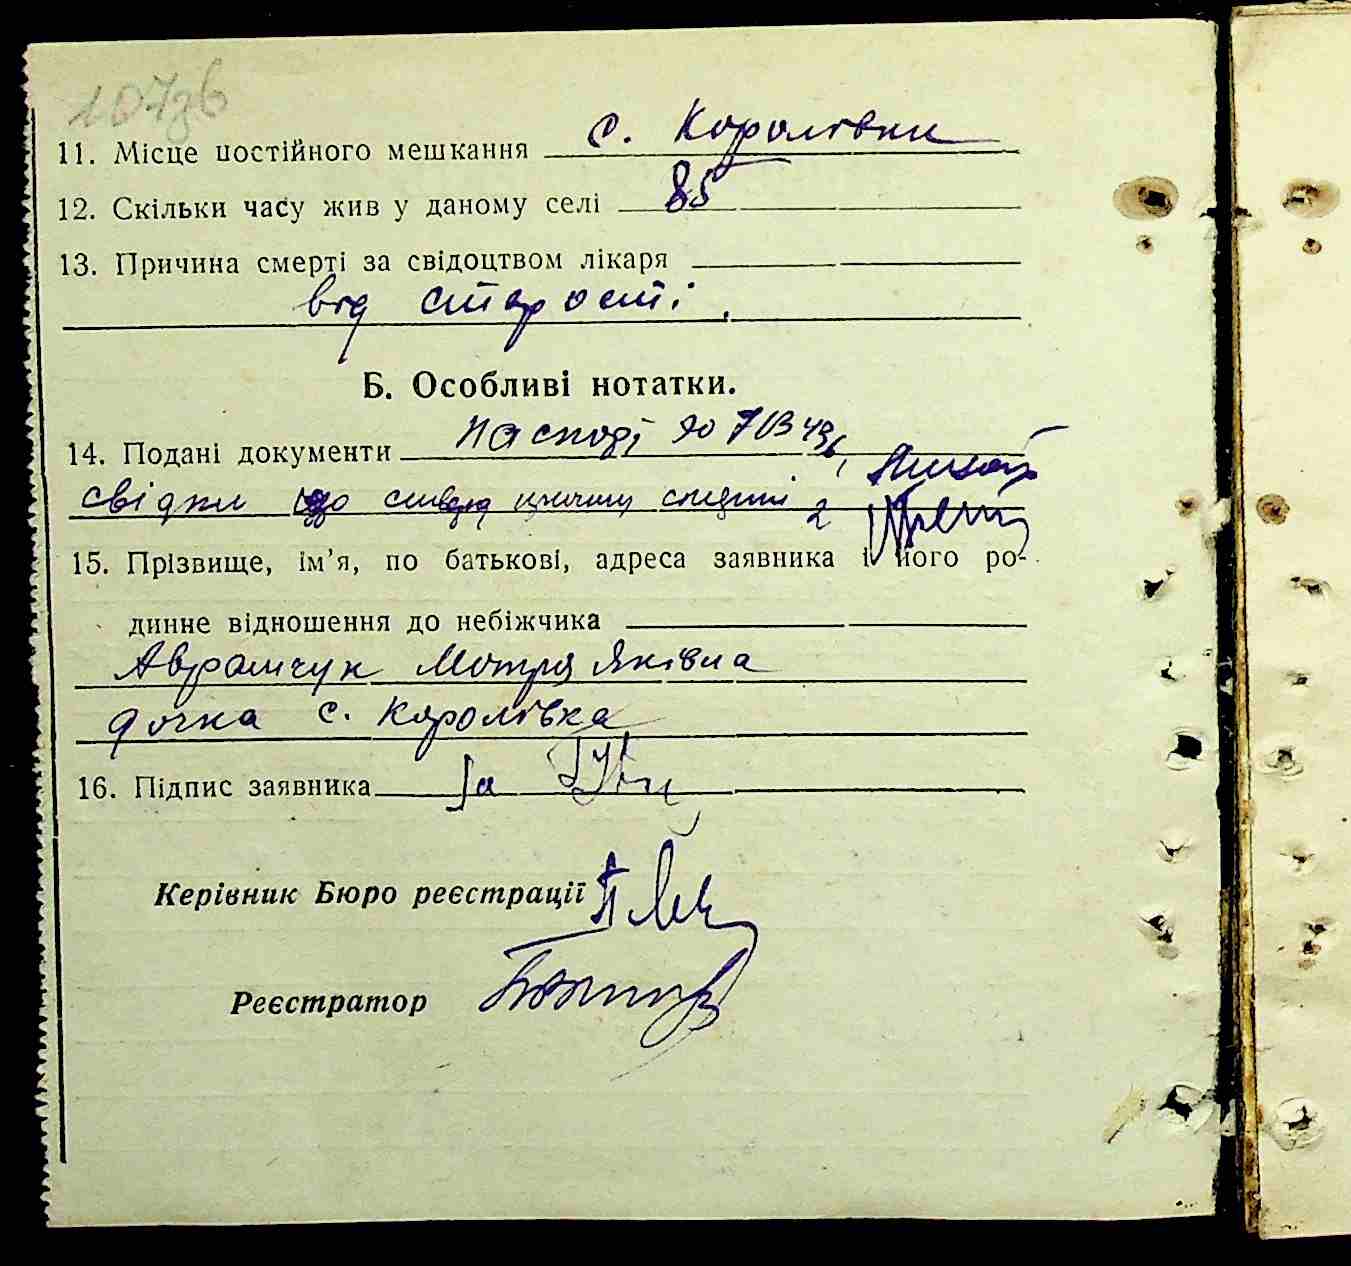 107зв
11. Місце постійного мешкання с. Королівки
12. Скільки часу жив у даному селі 85
13. Причина смерті за свідоцтвом лікаря
від старости.
Б. Особливі нотатки.
14. Подані документи
свідки що 2
15. Прізвище, ім’я, по батькові, адреса заявника і його ро-
динне відношення до небіжчика
Аврамчук Мотря Яківна
дочка с. Королівка
16. Підпис заявника за
Керівник Бюро реєстрації
Реєстратор